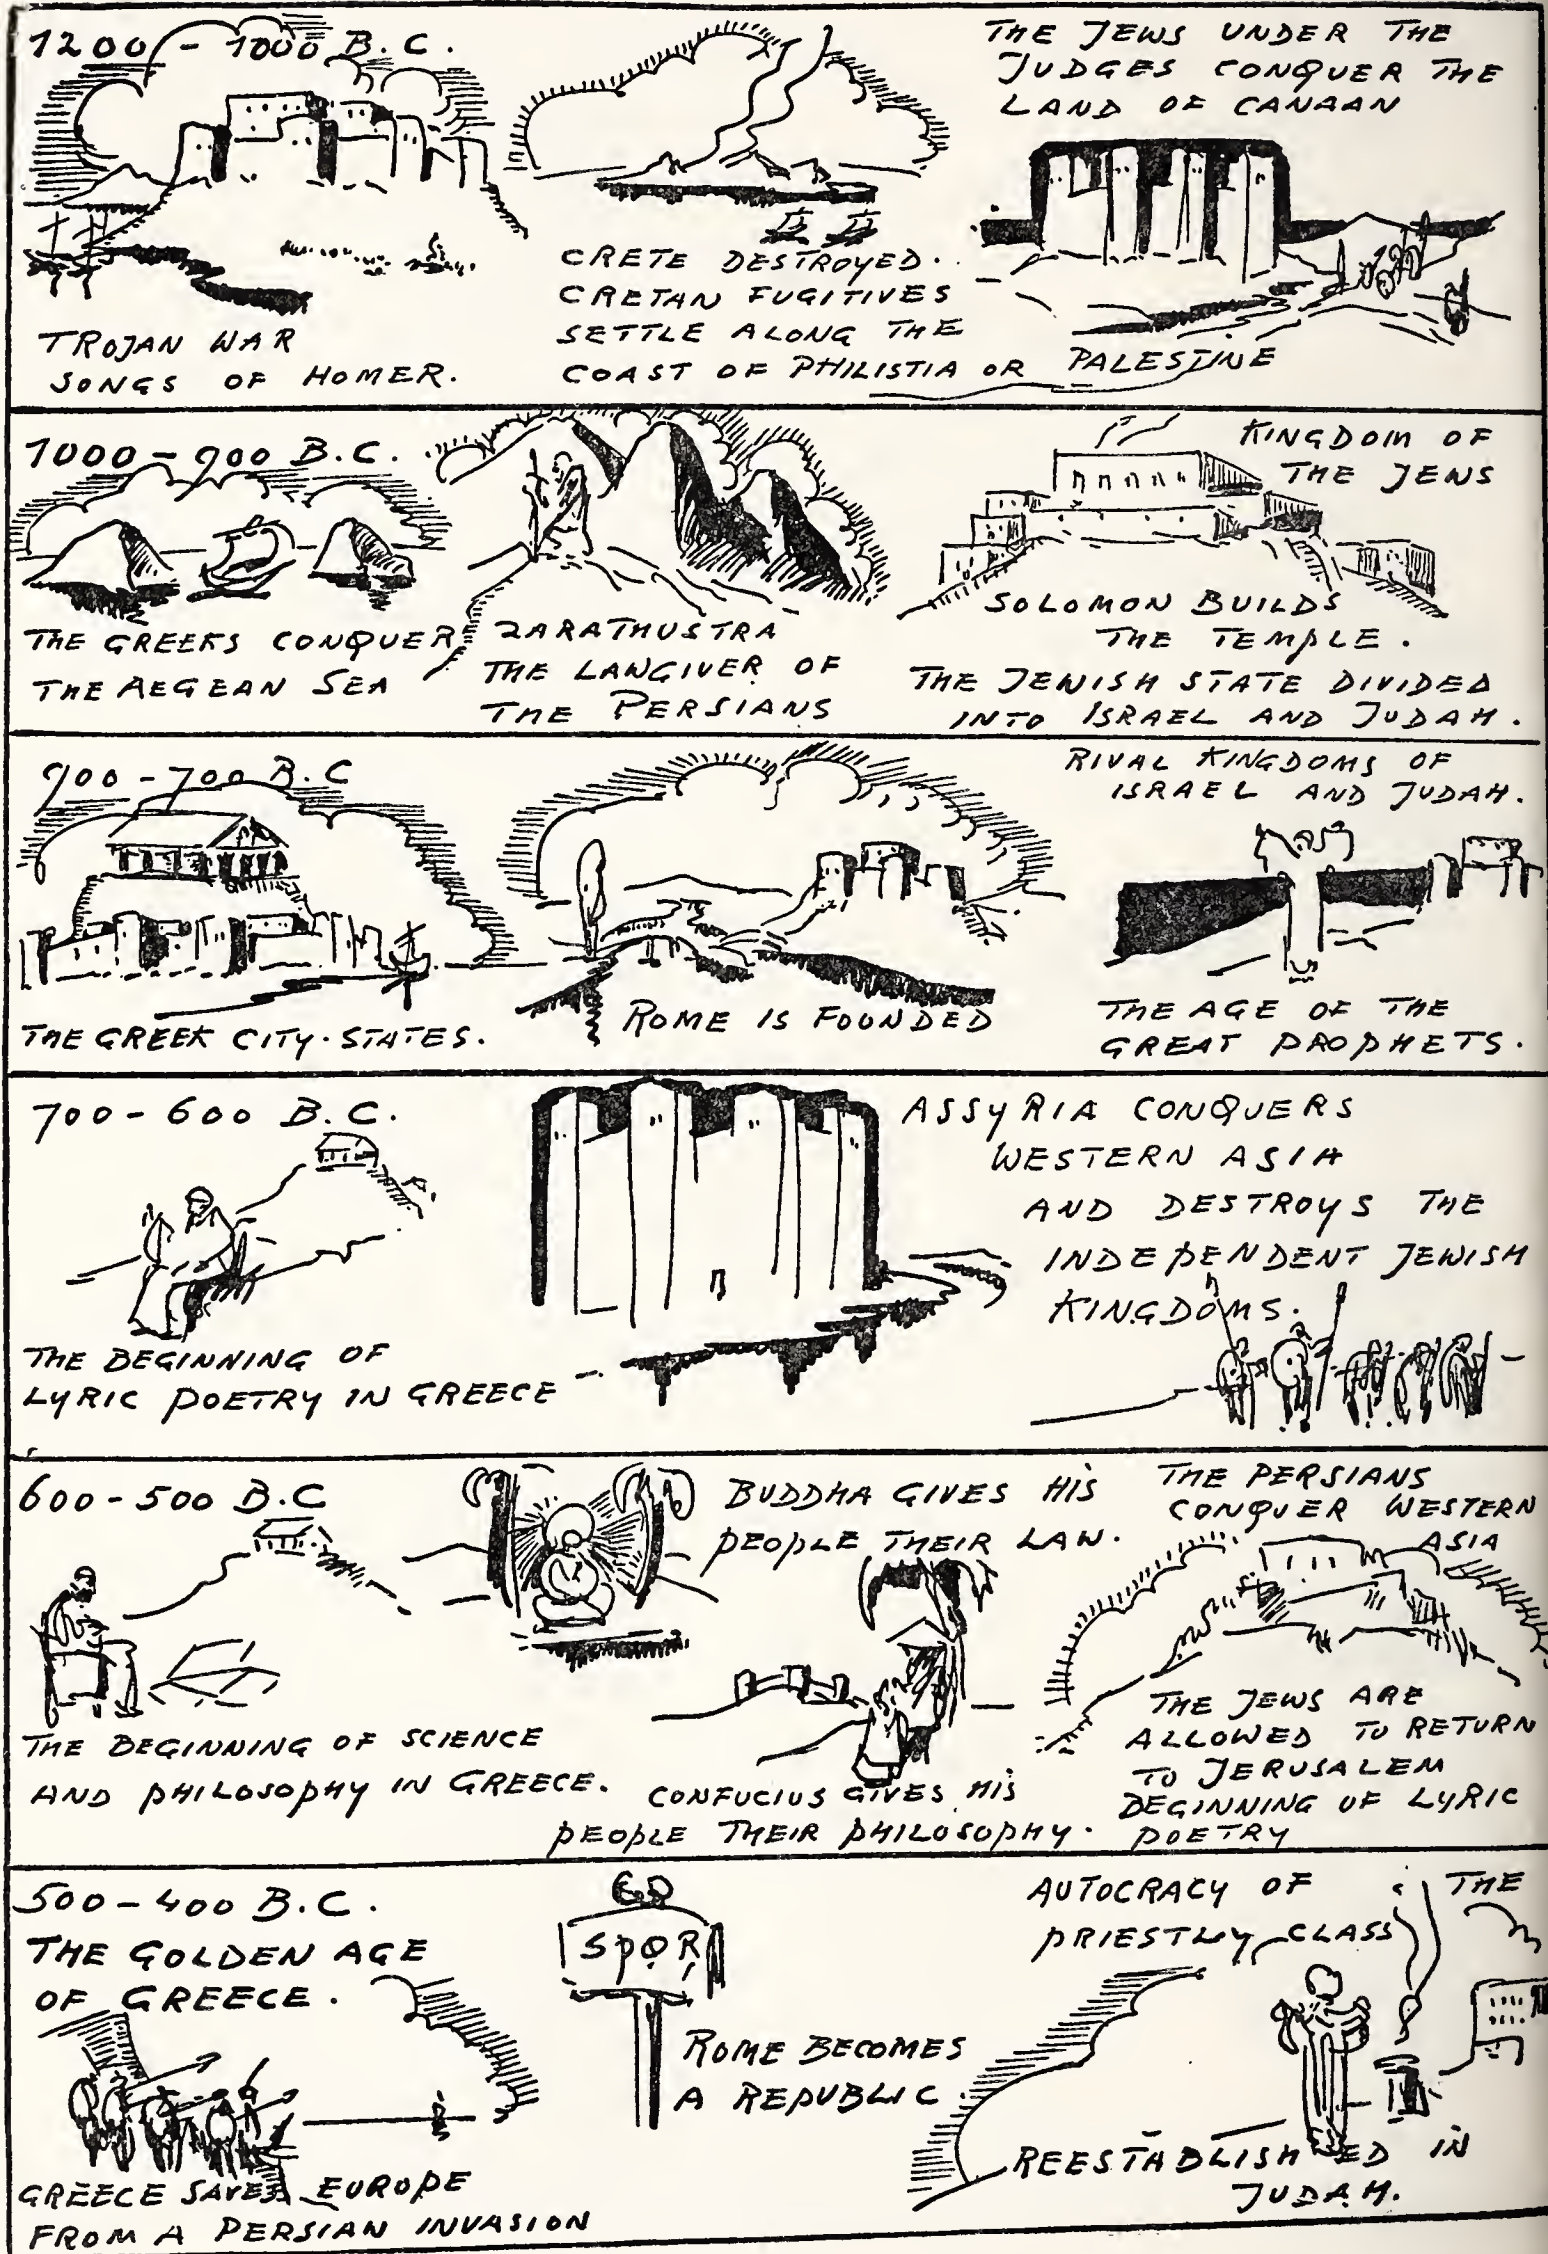 1200 - 1000 B.C.
TROJAN WAR
SONGS OF HOMER.
CRETE DESTROYED.
CRETAN FUGITIVES
SETTLE ALONG THE
COAST OF PHILISTIA OR PALESTINE
THE JEWS UNDER THE
JUDGES CONQUER THE
LAND OF CANAAN
1000 - 900 B.C.
THE GREEKS CONQUER
THE AEGEAN SEA
ZARATHUSTRA
THE LAWGIVER OF
THE PERSIANS
KINGDOM OF
THE JEWS
SOLOMON BUILDS
THE TEMPLE.
THE JEWISH STATE DIVIDED
INTO ISRAEL AND JUDAH.
900 - 700 B.C
THE GREEK CITY-STATES.
ROME IS FOUNDED
RIVAL KINGDOMS OF
ISRAEL AND JUDAH.
THE AGE OF THE
GREAT PROPHETS.
700 - 600 B.C.
THE BEGINNING OF
LYRIC POETRY IN GREECE
ASSYRIA CONQUERS
WESTERN ASIA
AND DESTROYS THE
INDEPENDENT JEWISH
KINGDOMS.
600 - 500 B.C
THE BEGINNING OF SCIENCE
AND PHILOSOPHY IN GREECE.
BUDDHA GIVES HIS
PEOPLE THEIR LAW.
CONFUCIUS GIVES HIS
PEOPLE THEIR PHILOSOPHY.
THE PERSIANS
CONQUER WESTERN
ASIA
THE JEWS ARE
ALLOWED TO RETURN
TO JERUSALEM
BEGINNING OF LYRIC
POETRY
500 - 400 B.C.
THE GOLDEN AGE
OF GREECE.
GREECE SAVES EUROPE
FROM A PERSIAN INVASION
SPQR
ROME BECOMES
A REPUBLIC
AUTOCRACY OF THE
PRIESTLY CLASS
REESTABLISHED IN
JUDAH.